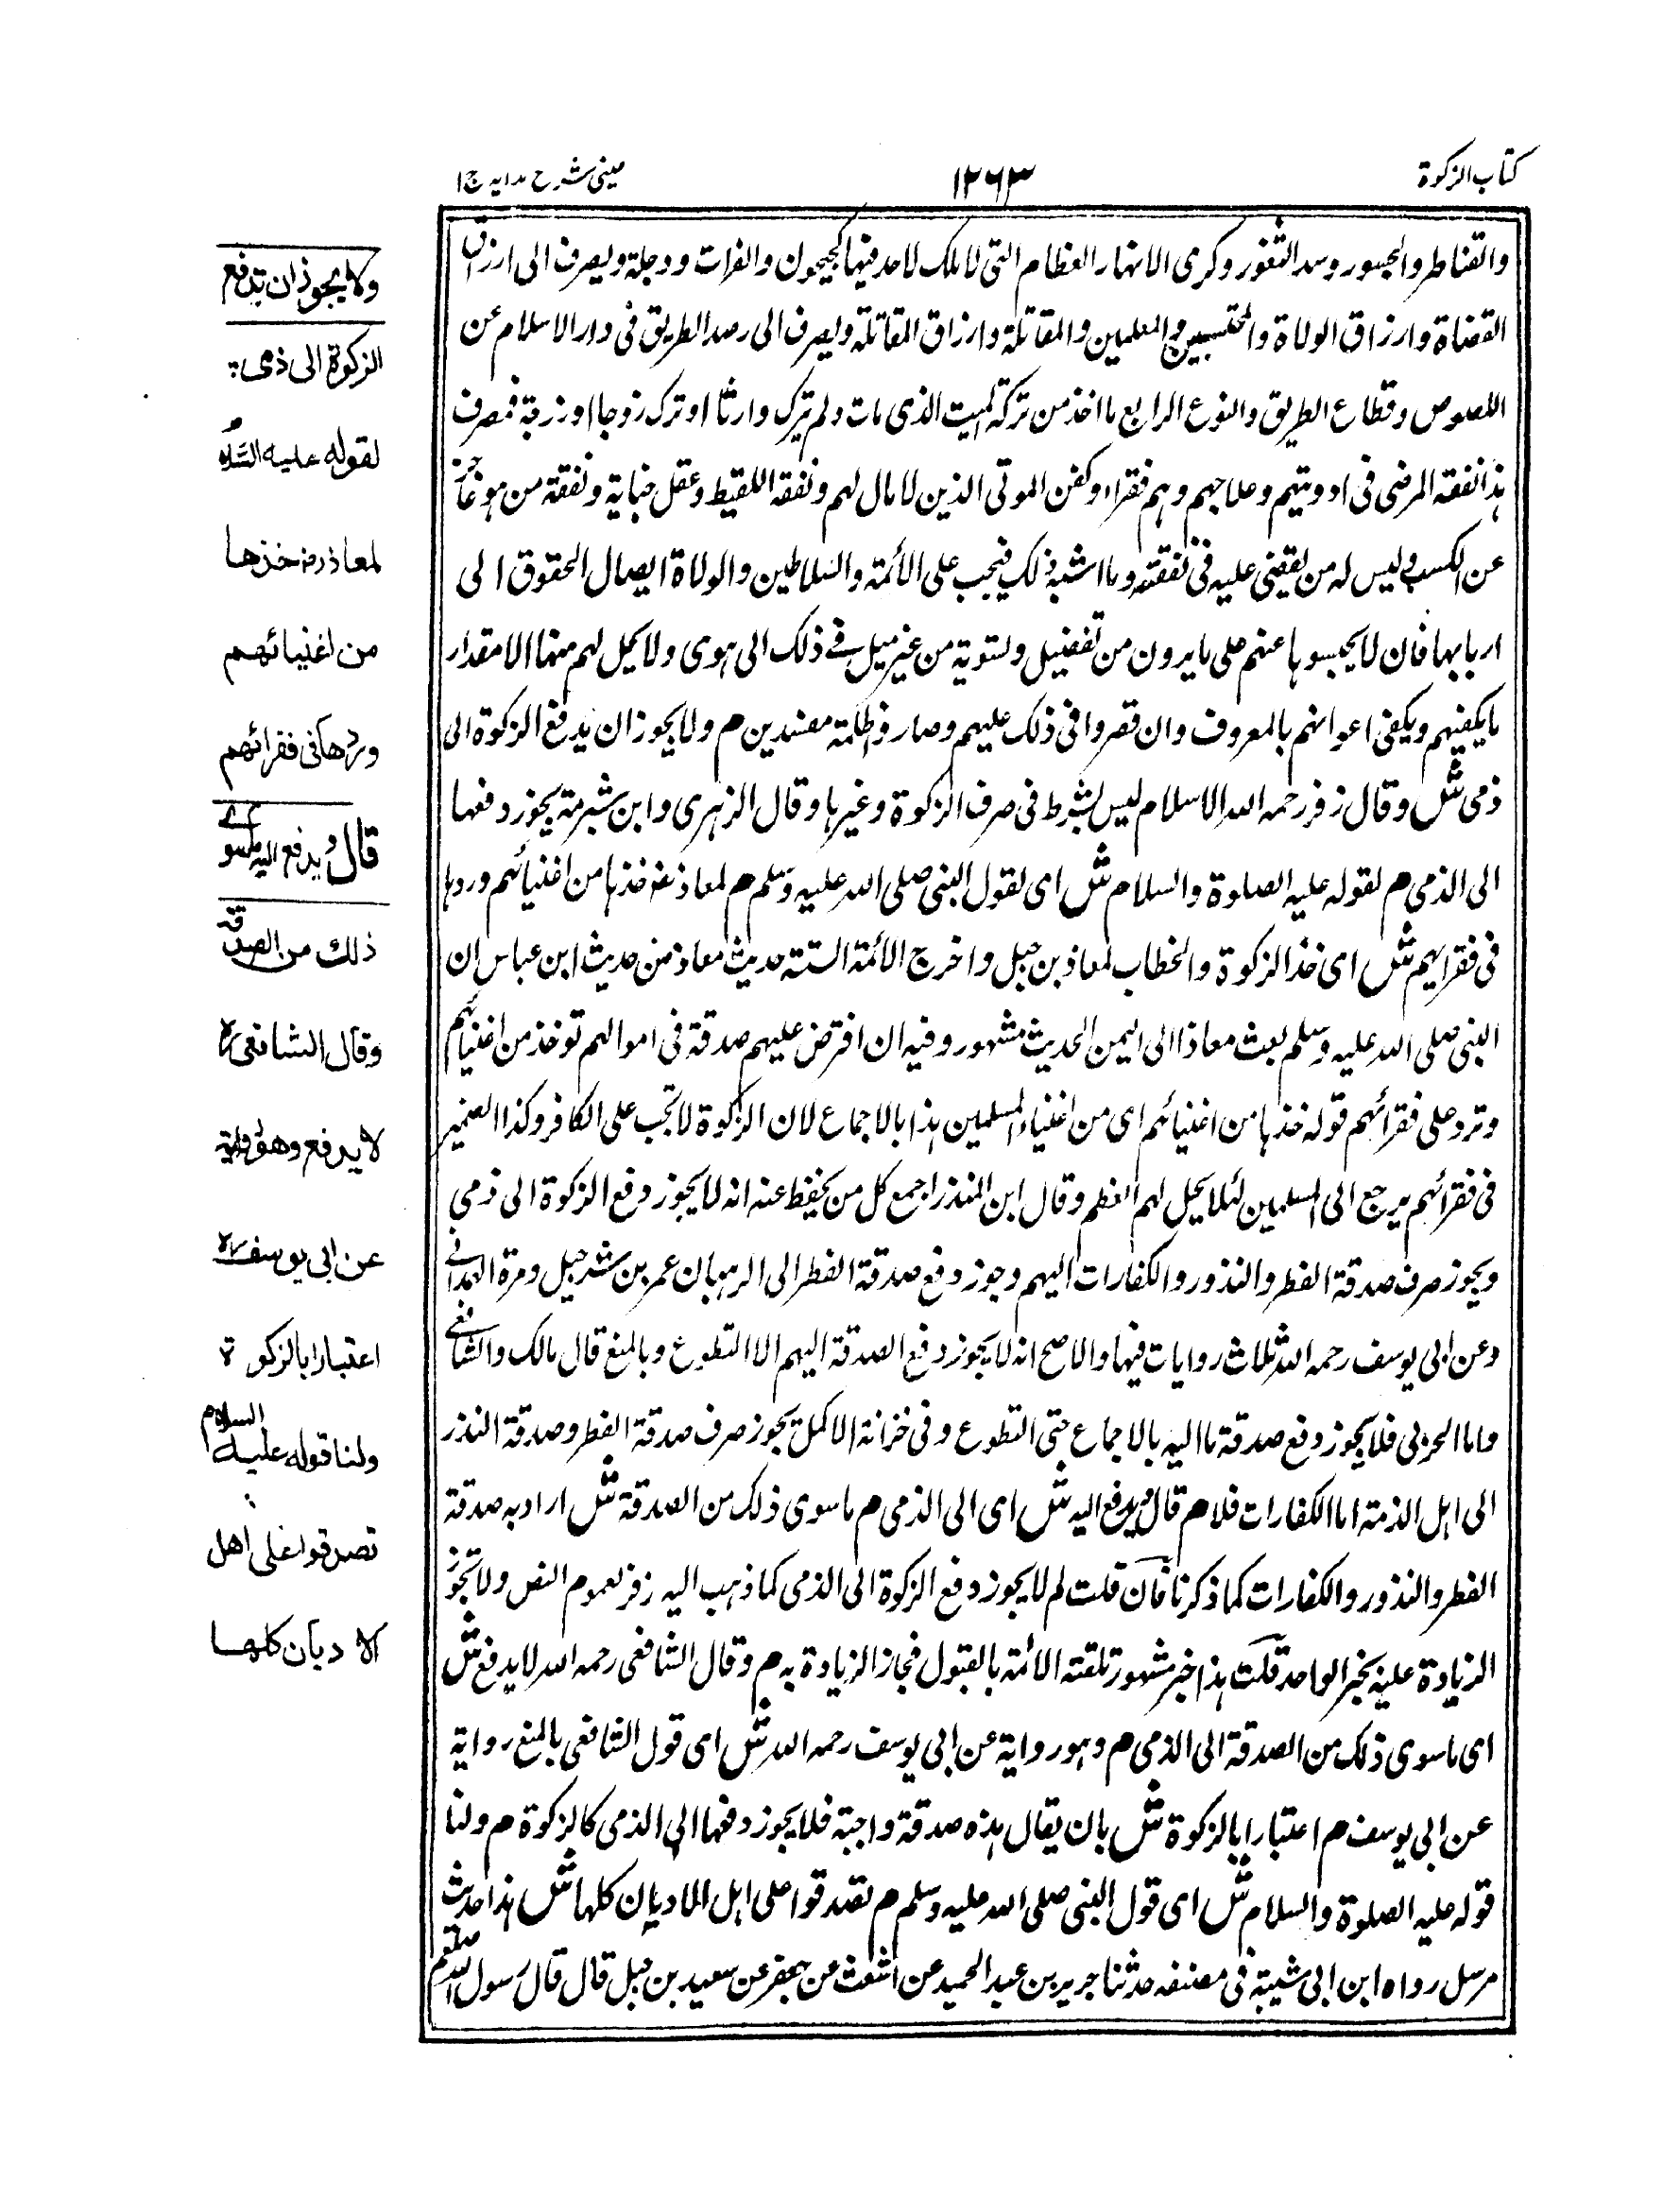 كتاب الزكوة
١٢٦٣
عينى شرح هدايه ج١
والقناطر والجسور وسد الثغور وكرى الانهار العظام التى لا ملك لاحد فيها كجيحون والفرات ودجلة ويصرف الى ارزاق
القضاة وارزاق الولاة والمحتسبين والمعلمين والمقاتلة وارزاق المقاتلة ويصرف الى رصد الطريق فى دار الاسلام عن
اللصوص وقطاع الطريق والنوع الرابع ما اخذ من تركة الميت الذى مات ولم يترك وارثا او ترك زوجا او زوجة فمصرف
هذا نفقة المرضى فى ادويتهم وعلاجهم وهم فقراء وكفن الموتى الذين لا مال لهم ونفقة اللقيط وعقل جناية ونفقة من هو عاجز
عن الكسب وليس له من يقضى عليه فى نفقته وما اشبه ذلك فيجب على الأئمة والسلاطين والولاة ايصال الحقوق الى
اربابها فان لا يحبسوها عنهم على ما يرون من تفضيل وتسوية من غير ميل فى ذلك الى هوى ولا يحل لهم منها الا مقدار
ما يكفيهم ويكفى اعوانهم بالمعروف وان قصروا فى ذلك عليهم وصاروا ظلمة مفسدين م ولا يجوز ان يدفع الزكوة الى
ذمى ش وقال زفر رحمه الله الاسلام ليس بشرط فى صرف الزكوة وغيرها وقال الزهرى وابن شبرمة يجوز دفعها
الى الذمى م لقوله عليه الصلوة والسلام ش اى لقول النبى صلى الله عليه وسلم م لمعاذ خذها من اغنيائهم وردها
فى فقرائهم ش اى خذ الزكوة والخطاب لمعاذ بن جبل واخرج الأئمة الستة حديث معاذ من حديث ابن عباس ان
النبى صلى الله عليه وسلم بعث معاذا الى اليمن الحديث مشهور وفيه ان افترض عليهم صدقة فى اموالهم توخذ من اغنيائهم
وترد على فقرائهم قوله خذها من اغنيائهم اى من اغنياء المسلمين هذا بالاجماع لان الزكوة لا تجب على الكافر وكذا الضمير
فى فقرائهم يرجع الى المسلمين لئلا يحيل لهم النظم وقال ابن المنذر اجمع كل من يحفظ عنه انه لا يجوز دفع الزكوة الى ذمى
ويجوز صرف صدقة الفطر والنذور والكفارات اليهم وجوز دفع صدقة الفطر الى الرهبان عمر بن شرحبيل ومرة الهمدانى
وعن ابى يوسف رحمه الله ثلاث روايات فيها والاصح انه لا يجوز دفع الصدقة اليهم الا التطوع وبالمنع قال مالك والشافعى
واما الحربى فلا يجوز دفع صدقة ما اليه بالاجماع حتى التطوع وفى خزانة الاكمل يجوز صرف صدقة الفطر وصدقة النذر
الى اهل الذمة اما الكفارات فلا م قال ويدفع اليه ش اى الى الذمى م ما سوى ذلك من الصدقة ش اراد به صدقة
الفطر والنذور والكفارات كما ذكرنا فان قلت لم لا يجوز دفع الزكوة الى الذمى كما ذهب اليه زفر لعموم النص ولا تجوز
الزيادة عليه بخبر الواحد قلت هذا خبر مشهور تلقته الائمة بالقبول فجاز الزيادة به م وقال الشافعى رحمه الله لا يدفع ش
اى ما سوى ذلك من الصدقة الى الذمى م وهو رواية عن ابى يوسف رحمه الله ش اى قول الشافعى بالمنع رواية
عن ابى يوسف م اعتبارا بالزكوة ش بان يقال هذه صدقة واجبة فلا يجوز دفعها الى الذمى كالزكوة م ولنا
قوله عليه الصلوة والسلام ش اى قول النبى صلى الله عليه وسلم م تصدقوا على اهل الاديان كلها ش هذا حديث
مرسل رواه ابن ابى شيبة فى مصنفه حدثنا جرير بن عبد الحميد عن اشعث عن جعفر عن سعيد بن جبل قال قال رسول الله صلعم
ولا يجوز ان تدفع
الزكوة الى ذمى
لقوله عليه السلام
لمعاذ رض خذها
من اغنيائهم
وردها فى فقرائهم
قال ويدفع اليه ما سوى
ذلك من الصدقة
وقال الشافعى رح
لا يدفع وهو رواية
عن ابى يوسف رح
اعتبارا بالزكوة
ولنا قوله عليه السلام
تصدقوا على اهل
الاديان كلها